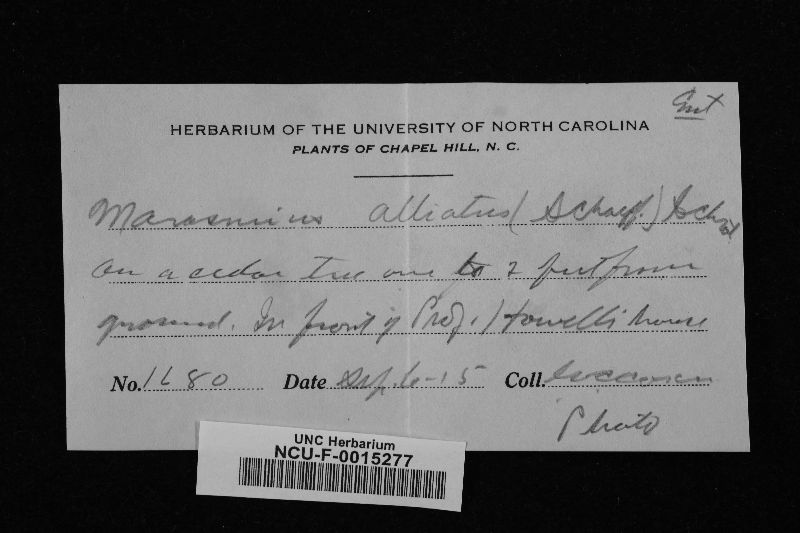 Ent
HERBARIUM OF THE UNIVERSITY OF NORTH CAROLINA
PLANTS OF CHAPEL HILL, N. C.
Marasmius alliatus (Schaeff.) Schroet
On a cedar tree one to 2 feet from
ground. In front of Prof. Howell's house
No. 1680 Date Sep. 6-15 Coll.
Photo
UNC Herbarium
NCU-F-0015277